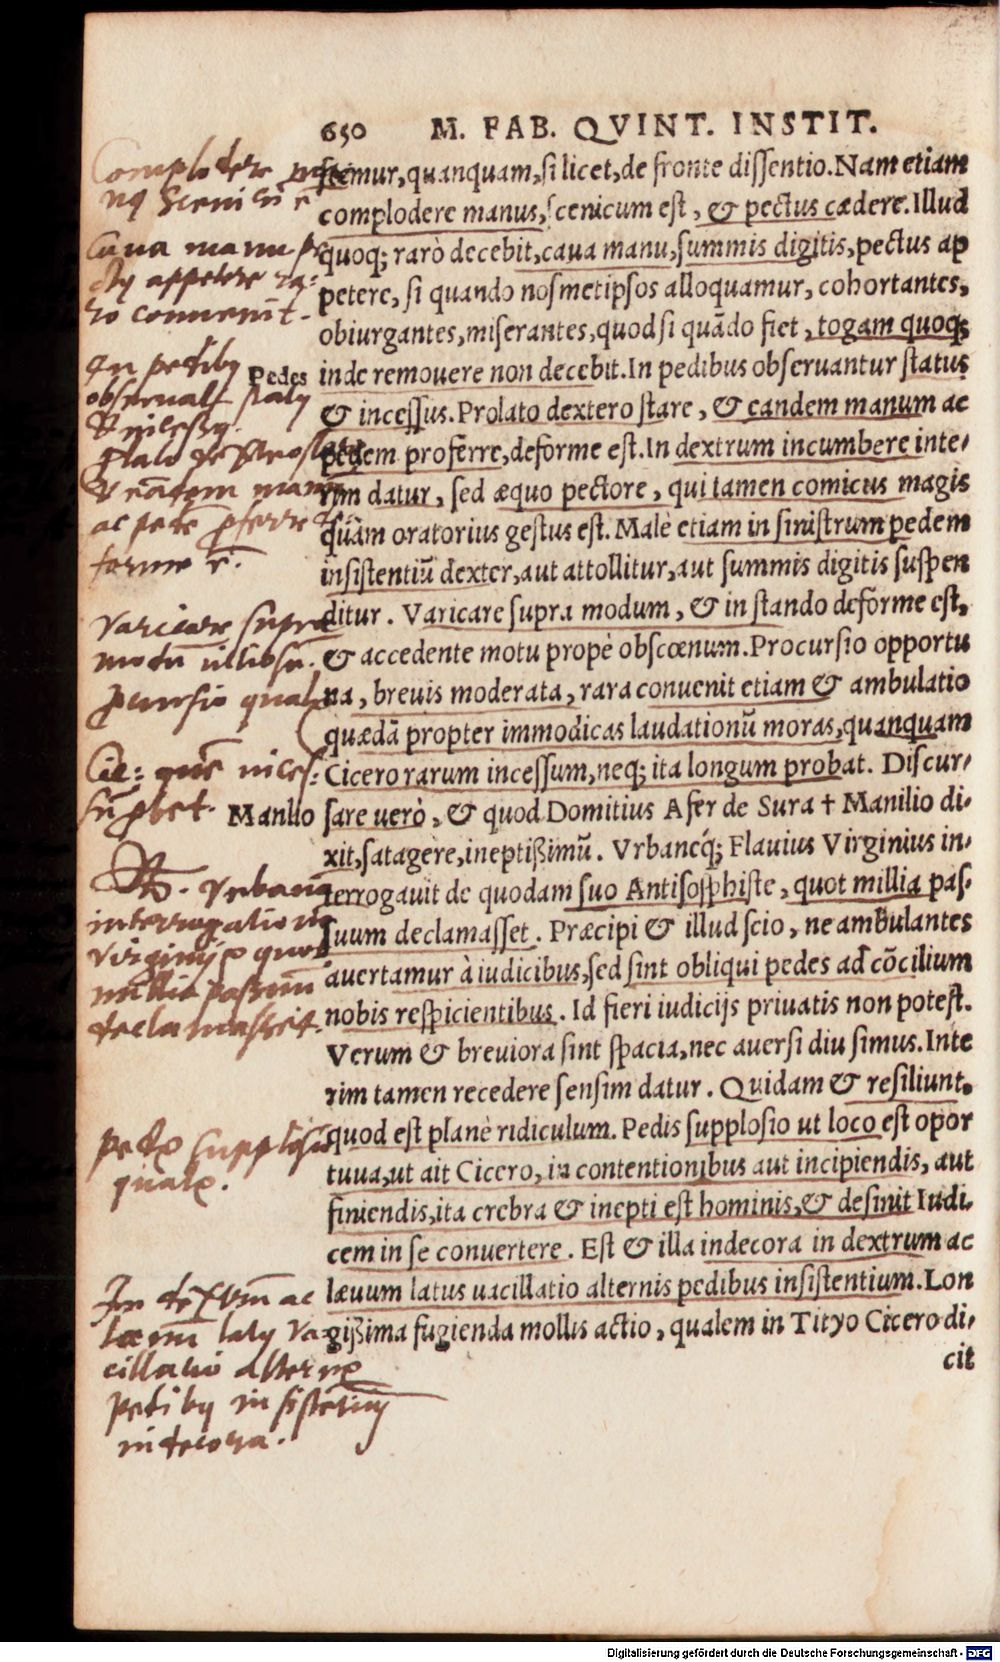 650 M. FAB. QVINT. INSTIT.
stemur, quanquam, si licet, de fronte dissentio. Nam etiam
complodere manus, scenicum est, & pectus cædere. Illud
quoq; rarò decebit, caua manu, summis digitis, pectus ap
petere, si quando nosmetipsos alloquamur, cohortantes,
obiurgantes, miserantes, quod si quãdo fiet, togam quoq;
Pedes
inde remouere non decebit. In pedibus obseruantur status
& incessus. Prolato dextero stare, & eandem manum ac
pedem proferre, deforme est. In dextrum incumbere inte-
rim datur, sed æquo pectore, qui tamen comicus magis
quàm oratorius gestus est. Malè etiam in sinistrum pedem
insistentiũ dexter, aut attollitur, aut summis digitis suspen
ditur. Varicare supra modum, & in stando deforme est,
& accedente motu propè obscœnum. Procursio opportu
na, breuis moderata, rara conuenit etiam & ambulatio
quædã propter immodicas laudationũ moras, quanquam
Cicero rarum incessum, neq; ita longum probat. Discur-
Manlio
sare uerò, & quod Domitius Afer de Sura † Manilio di-
xit, satagere, ineptißimũ. Vrbanéq; Flauius Virginius in-
terrogauit de quodam suo Antisosphiste, quot millia pas-
suum declamasset. Præcipi & illud scio, ne ambulantes
auertamur à iudicibus, sed sint obliqui pedes ad cõcilium
nobis respicientibus. Id fieri iudicijs priuatis non potest.
Verum & breuiora sint spacia, nec auersi diu simus. Inte
rim tamen recedere sensim datur. Quidam & resiliunt,
quod est planè ridiculum. Pedis supplosio ut loco est opor
tuua, ut ait Cicero, in contentionibus aut incipiendis, aut
finiendis, ita crebra & inepti est hominis, & desinit Iudi-
cem in se conuertere. Est & illa indecora in dextrum ac
læuum latus uacillatio alternis pedibus insistentium. Lon
gißima fugienda mollis actio, qualem in Tityo Cicero di-
cit
Complodere
Scenicũ ẽ
Caua manu
appetere ra-
ro conuenit.
In pedibꝰ
obseruat statꝰ
& incessꝰ.
& eãdem manũ
ac pedẽ ꝓferre de
forme ẽ.
Varicare supra
modũ
Cic:
Vrbana
interrogatio
Virginij
millia passuum
declamasset.
pedis supplosio
qualis.
In dextrum ac
læuũ latꝰ va-
cillatio alternis
pedibꝰ insistentiũ
indecora.
Digitalisierung gefördert durch die Deutsche Forschungsgemeinschaft - DFG